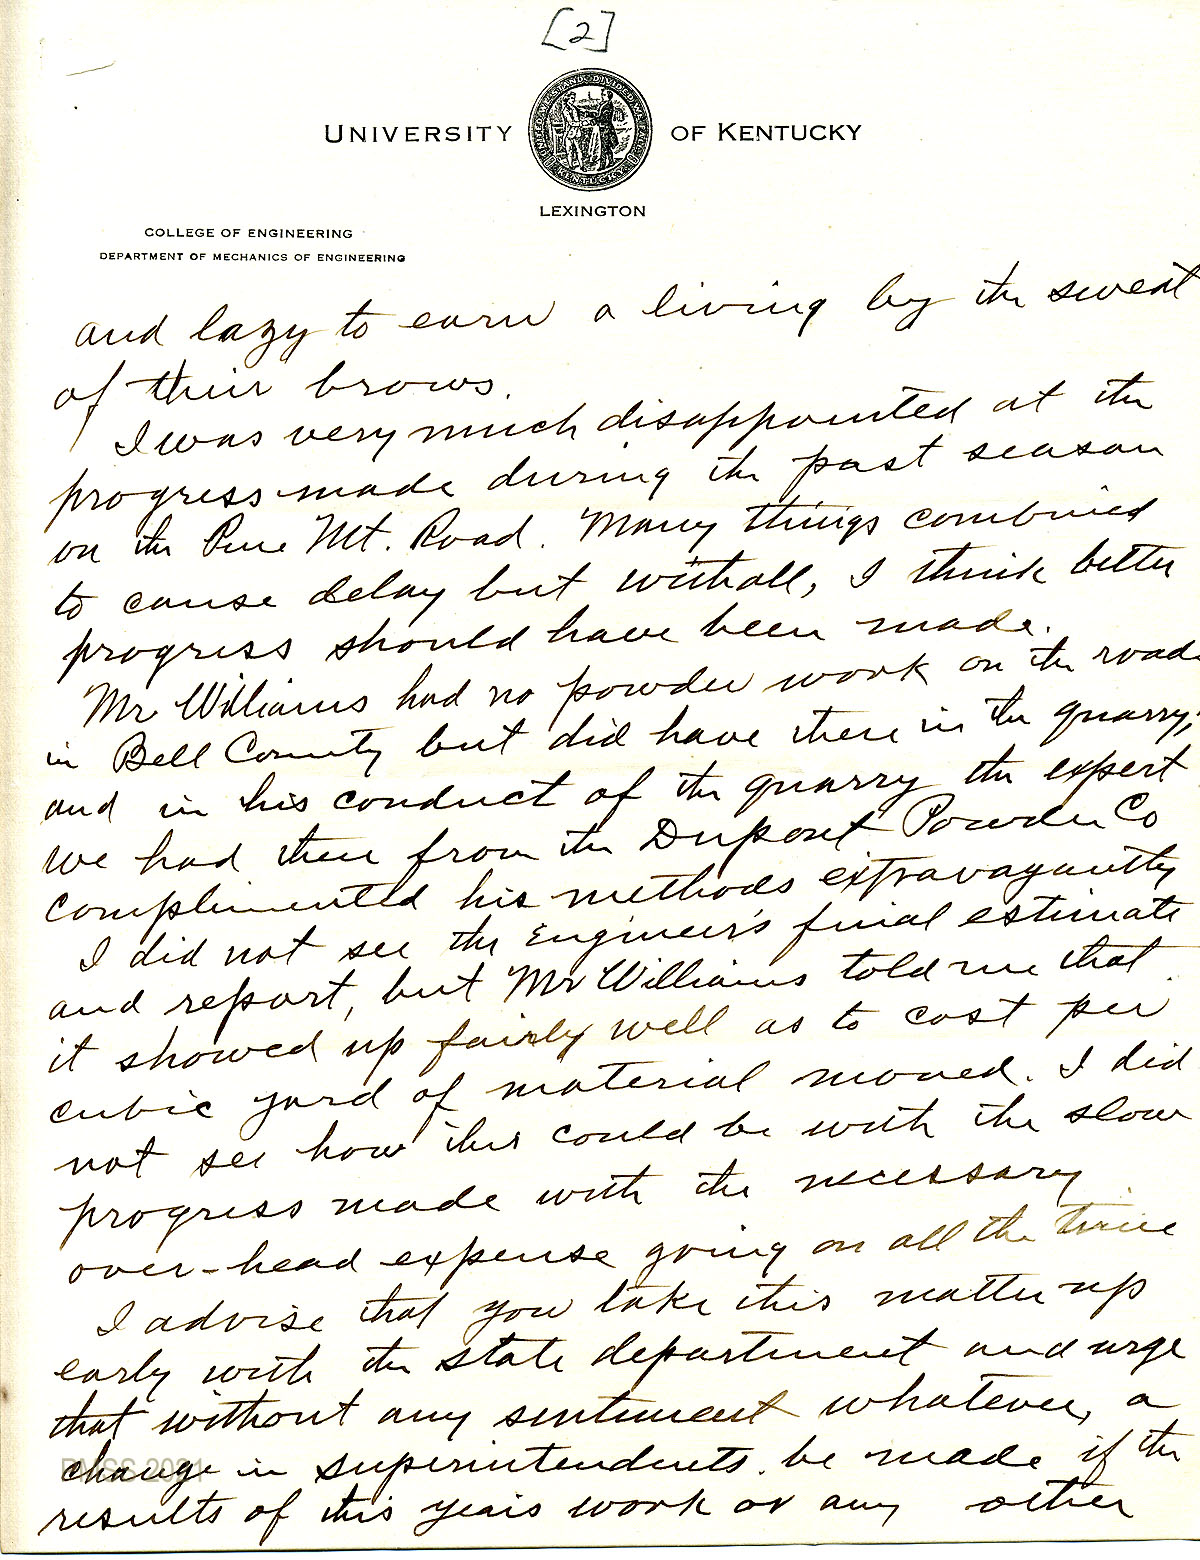 [2]
UNIVERSITY OF KENTUCKY
LEXINGTON
COLLEGE OF ENGINEERING
DEPARTMENT OF MECHANICS OF ENGINEERING
and lazy to earn a living by the sweat
of their brows.
I was very much disappointed at the
progress made during the past season
on the Pine Mt. Road. Many things combined
to cause delay but withall, I think better
progress should have been made.
Mr Williams had no powder work on the road
in Bell County but did have there in the quarry,
and in his conduct of the quarry the expert
we had there from the Dupont Powder Co
complimented his methods extravagantly
I did not see the Engineer's final estimate
and report, but Mr Williams told me that
it showed up fairly well as to cost per
cubic yard of material moved. I did
not see how this could be with the slow
progress made with the necessary
over-head expense going on all the time
I advise that you take this matter up
early with the state department and urge
that without any sentiment whatever, a
change in superintendents be made if the
results of this years work or any other
PMSS 2021